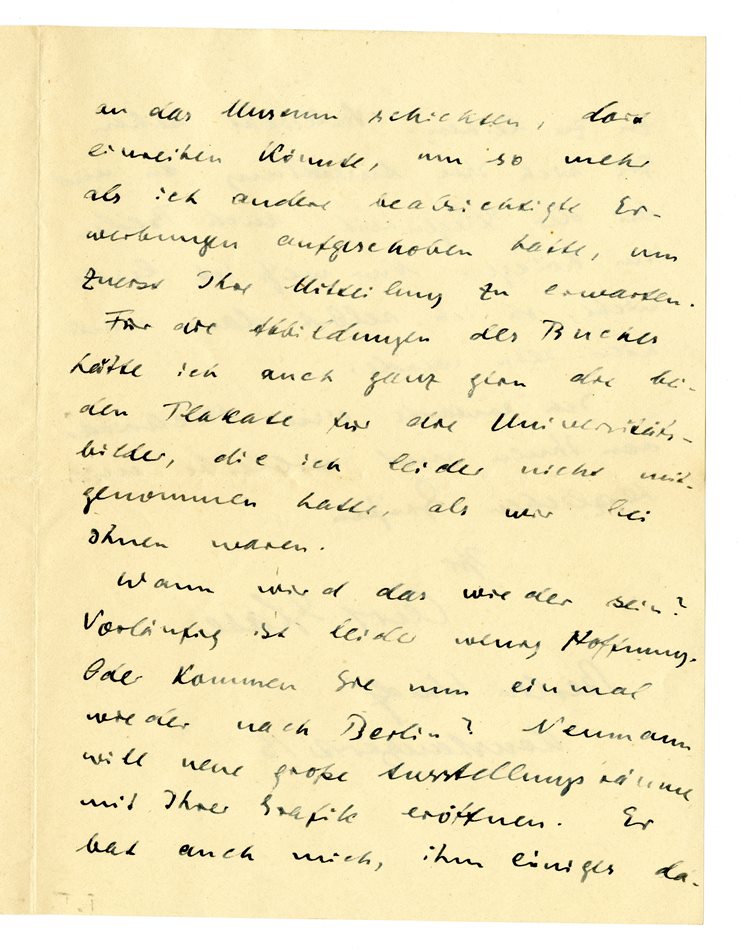 an das Museum schickten, dort
einreihen könnte, um so mehr
als ich andere beabsichtigte Er-
werbungen aufgeschoben hatte, um
zuerst Ihre Mitteilung zu erwarten.
Für die Abbildungen des Buches
hätte ich auch ganz gern die bei-
den Plakate für die Universitäts-
bilder, die ich leider nicht mit-
genommen hatte, als wir bei
Ihnen waren.
Wann wird das wieder sein?
Vorläufig ist leider wenig Hoffnung.
Oder kommen Sie nun einmal
wieder nach Berlin? Neumann
will neue große Ausstellungsräume
mit Ihrer Grafik eröffnen. Er
bat auch mich, ihm einiges da-